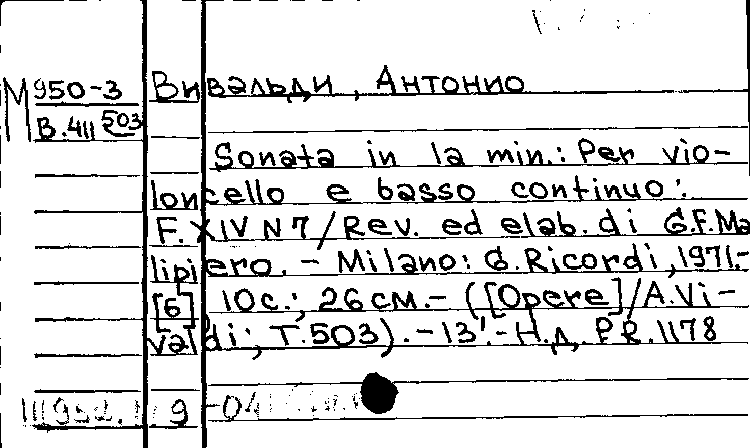 М 950-3 Вивальди, Антонио
В.411 503
Sonata in la min.: Per vio-
loncello e basso continuo:
F. XIV N 7/Rev. ed elab. di G.F.Ma
lipiero. – Milano: G.Ricordi, 1971.-
[6] 10с.; 26см.- ([Opere]/A.Vi-
valdi; T.503). -13'.- Н.д. P.R.1178